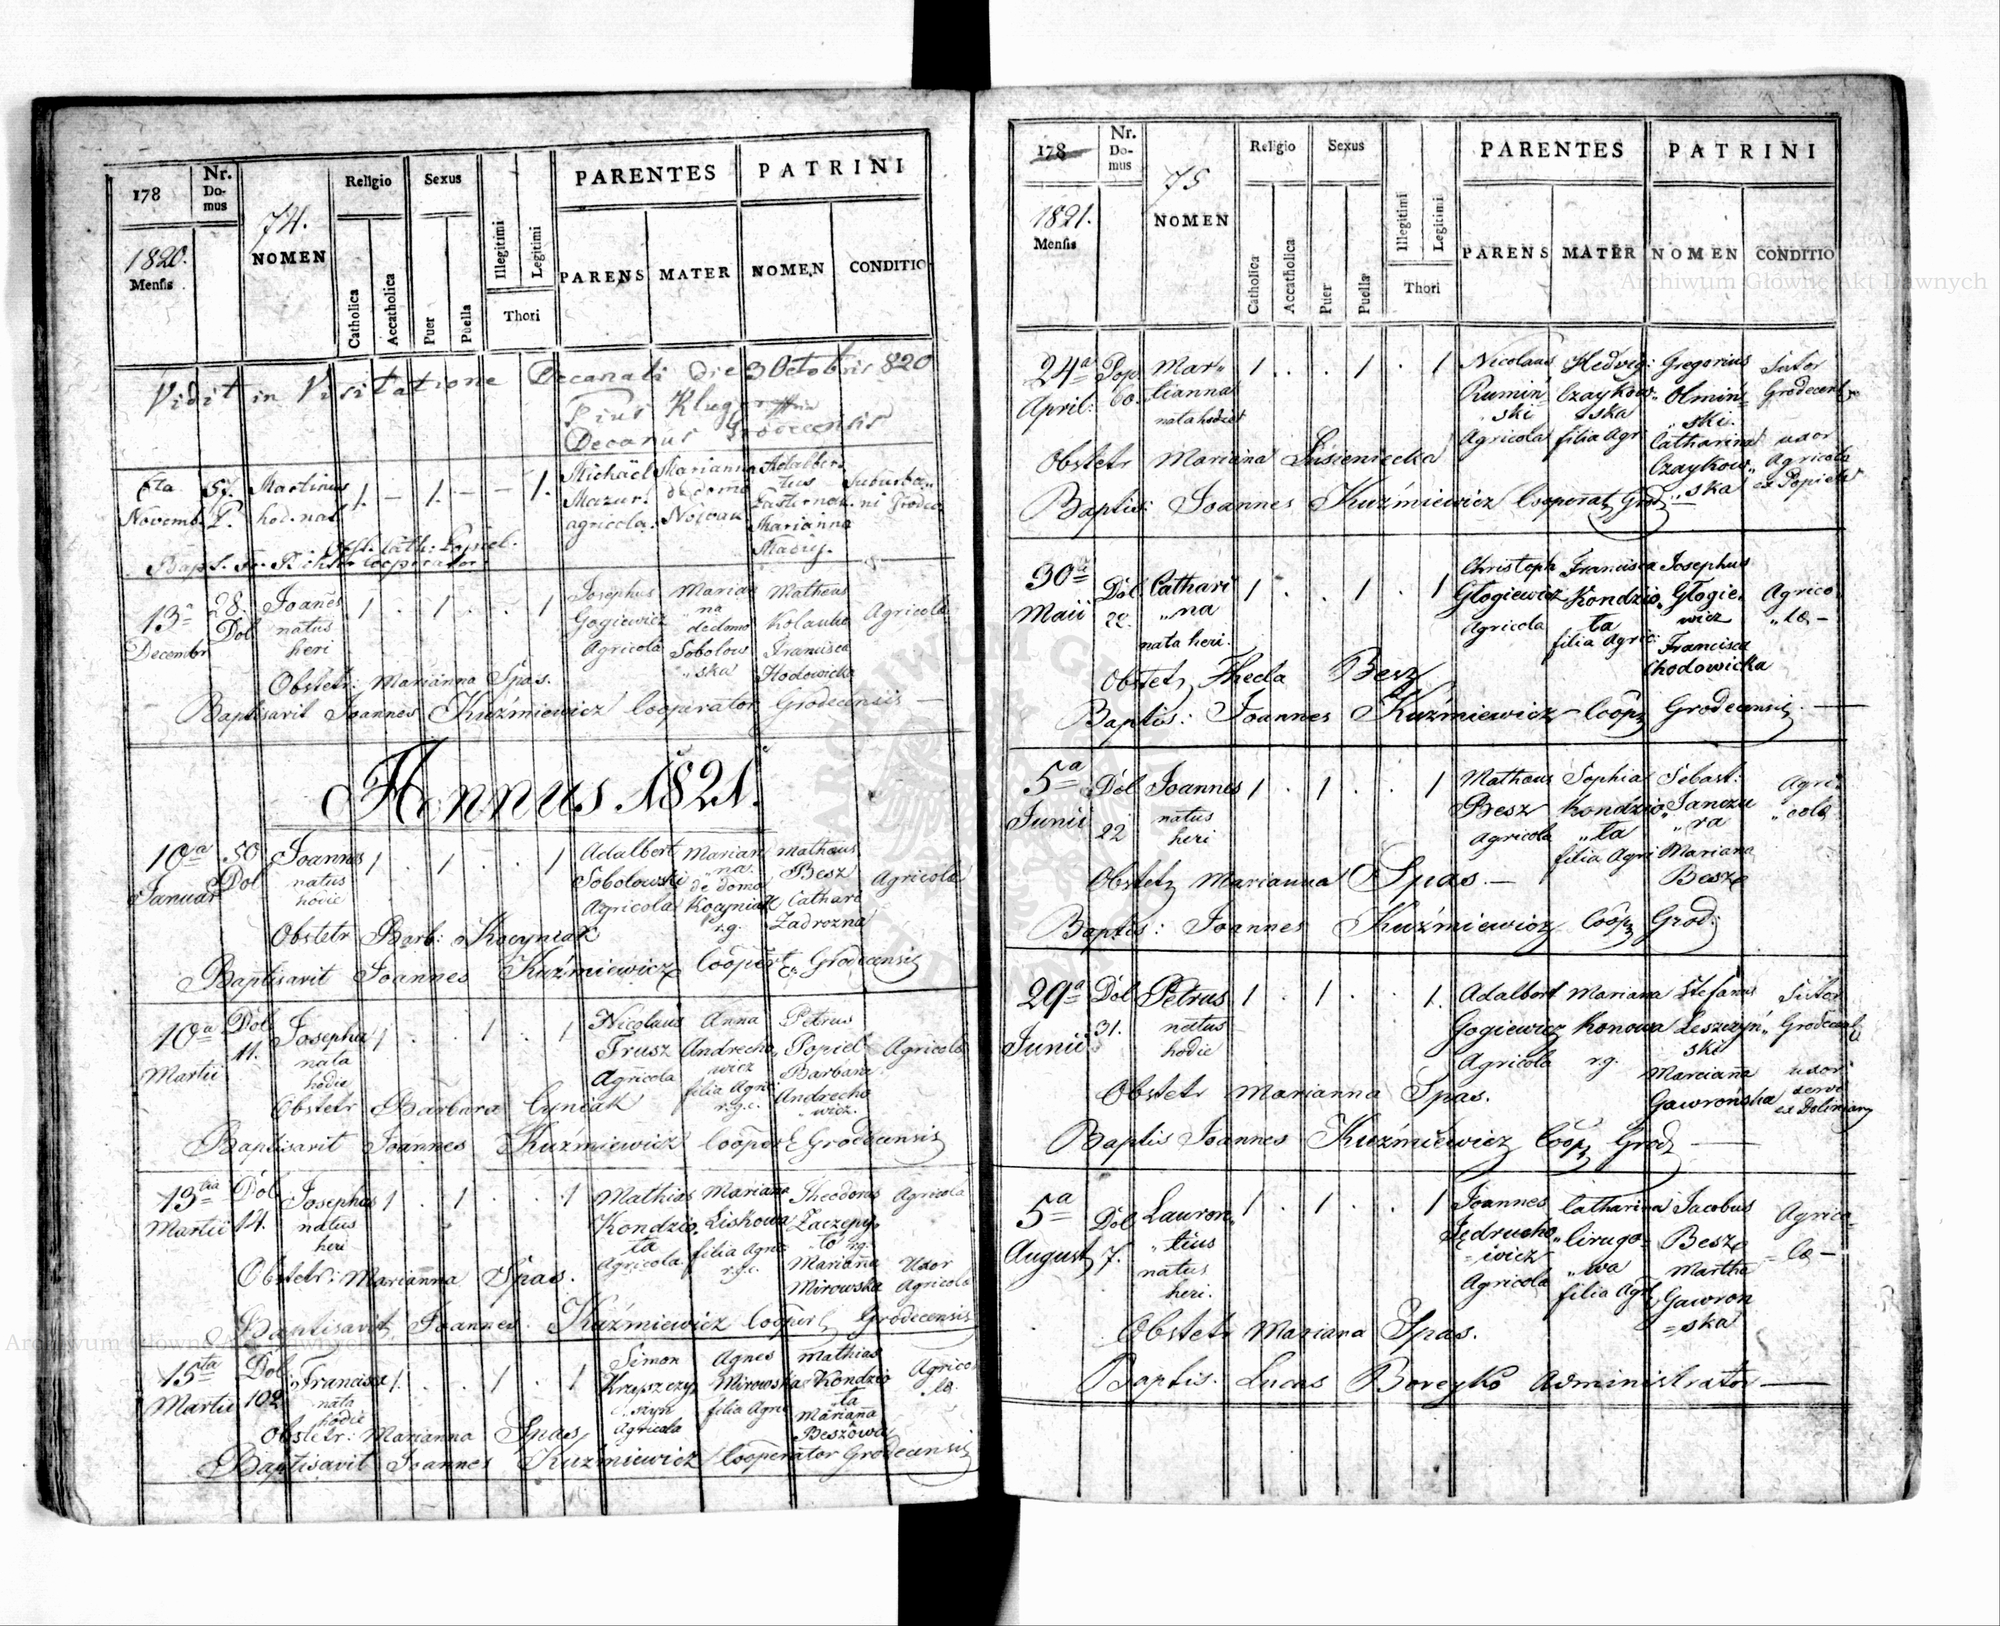 178
Nr. Domus
74.
NOMEN
Religio
Sexus
PARENTES
PATRINI
1820.
Mensis
Catholica
Accatholica
Puer
Puella
Illegitimi
Legitimi
Thori
PARENS
MATER
NOMEN
CONDITIO
Vidit in Visitatione Decanali die 3 Octobris 820
Pius
Decanus Grodecensis
6ta 57. Martinus 1. — 1. — — 1. Michäel Marianna Adalber
Novemb. P. hod. nat. Mazur. de domo tus Suburba„
agricola. Marianna
Bapt. Cooperator
13a 28. Joanes 1 . 1 . . 1 Josephus Marian Matheus
Decembr Dol natus Gogiewicz na Agricola
heri Agricola de domo Francisca
Sobolow„ Hodowicka
„ska
Obstetr: Marianna Spas.
Baptisavit Joannes Kuźmiewicz Cooperator Grodecensis
Annus 1821.
10a 50 Joannes 1 . 1 . . 1 Adalbert Marian Matheus
Januar Dol natus Sobolowski „na. Besz Agricola
hodie Agricola de domo Cathari
Kocyniak Zadrozna
r.g.
Obstetr Barb: Kocyniak
Baptisavit Joannes Kuźmiewicz Coopert Grodecensis
10a Dol Josepha 1 . . 1 . 1 Nicolaus Anna Petrus
Martii 11. nata Frusz Andrecho„ Popiel Agricola
hodie Agricola wicz Barbara
filia Agri Andrecho
r.g.c. „wicz.
Obstetr Barbara Cyniak
Baptisavit Joannes Kuźmiewicz Cooper Grodecensis
13tia Dol Josephus 1 . 1 . . 1 Mathias Mariana Theodorus Agricola
Martii 14. natus Kondzio„ Liskowa Zaczepy„
heri ta filia Agric „to r.g.
Agricola r.g.c. Mariana Uxor
Mirowska Agricola
Obstetr: Marianna Spas.
Baptisavit Joannes Kuźmiewicz Cooper Grodecensis
15ta Dol Francisca 1. . . 1 . 1 Simon Agnes Mathias Agrico
Martii 102 nata Mirowska Kondzio „la.
hodie filia Agri „ta
Agricola Mariana
Beszowa
Obstetr: Marianna Spas
Baptisavit Joannes Kuźmiewicz Cooperator Grodecensis
178
Nr. Domus
75
NOMEN
Religio
Sexus
PARENTES
PATRINI
1821.
Mensis
Catholica
Accatholica
Puer
Puella
Illegitimi
Legitimi
Thori
PARENS
MATER
NOMEN
CONDITIO
24a Pop. Mar„ 1 . . 1 . 1 Nicolaus Hedvig: Gregorius Sutor
April: 60. tianna Rumiń„ Czaykow„ Olmiń„ Grodecens
nata hodie ski ska „ski.
Agricola filia Agr Catharina uxor
Czaykow„ Agricola
„ska ex Popiele
Obstetr Mariana Lisieniecka
Baptis: Joannes Kuźmiewicz Cooperat Grod
30a Dol Cathari 1 . . 1 . 1 Christoph Francisca Josephus
Maii 22. „na Głogiewicz Kondzio„ Głogie„ Agrico
nata heri. Agricola ta wicz „la —
filia Agric: Francisca
Chodowicka
Obstetr Thecla Besz
Baptis: Joannes Kuźmiewicz Coop Grodecensis.
5a Dol Joannes 1 . 1 . . 1 Matheus Sophia Sebast: Agri„
Junii 22 natus Besz Kondzio„ Janczu „cola
heri Agricola „ta „ra
filia Agri Mariana
Besz
Obstetr Marianna Spas. —
Baptis: Joannes Kuźmiewicz Coop Grod:
29a Dol Petrus 1 . 1 . . 1. Adalbert Mariana Stefanus Sutor
Junii 31. natus Gogiewicz Konowa Leszczyń„ Grodecens
hodie Agricola r.g. ski
Marciana uxor
Gawrońska servi
ex Doliniany
Obstetr Marianna Spas.
Baptis Joannes Kuźmiewicz Coop Grod
5a Dol Lauren„ 1 . 1 . . 1 Joannes Catharina Jacobus Agrico„
August 7. „tius Jędrucho„ Cirugo„ Besz „la —
natus „iwicz „wa Martha
heri. Agricola filia Agr Gawron
„ska
Obstetr Mariana Spas.
Baptis. Lucas Boreyko Administrator
Archiwum Główne Akt Dawnych